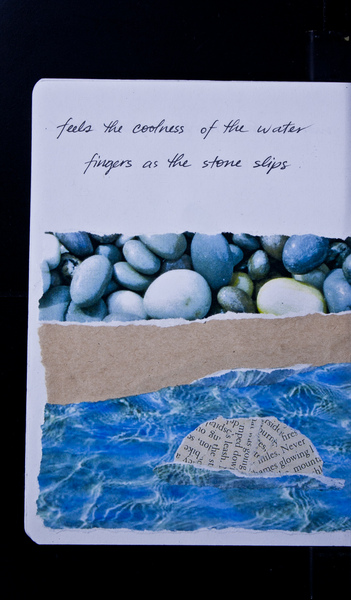 feels the coolness of the water
fingers as the stone slips
fire.
Never
glowing
mount